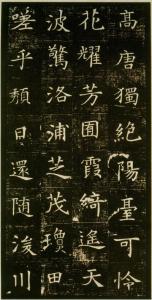 高唐獨絶陽臺可怜
花耀芳囿霞綺遙天
波驚洛浦芝茂瓊田
嗟乎頹日還随浚川